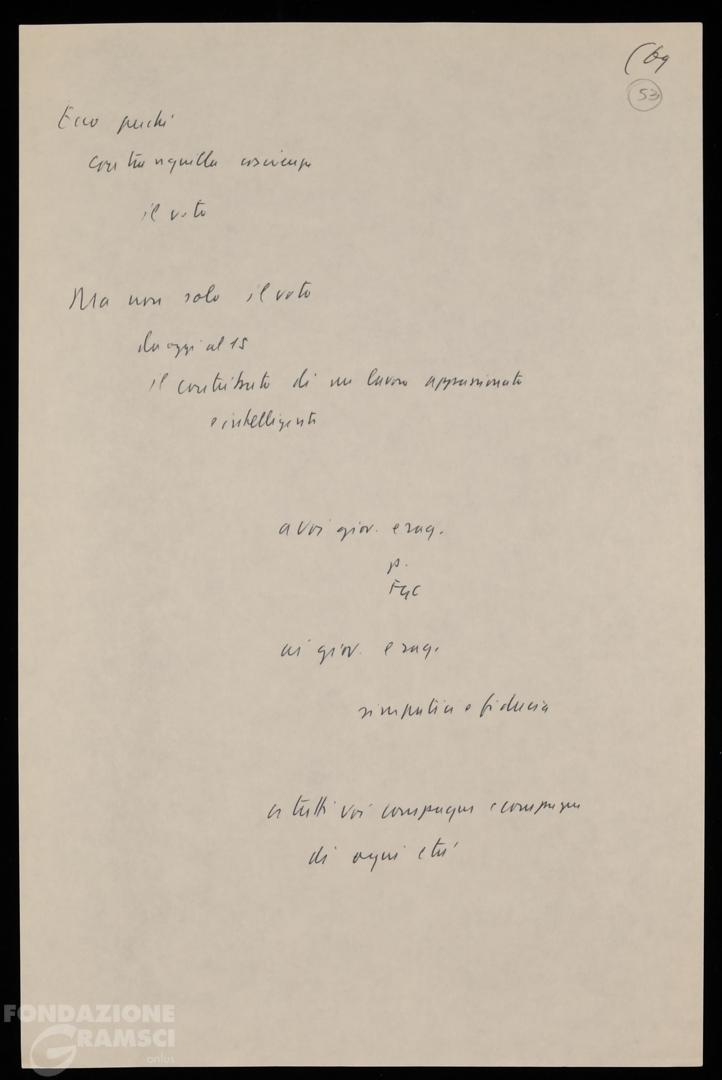 (69
53
Ecco perché
con tranquilla coscienza
il voto
Ma non solo il voto
da oggi al 15
il contributo di un lavoro appassionato
e intelligente
a voi giov. e rag.
p.
FGC
ai giov. e rag.
simpatia e fiducia
a tutti voi compagni e compagne
di ogni età
FONDAZIONE
GRAMSCI
onlus